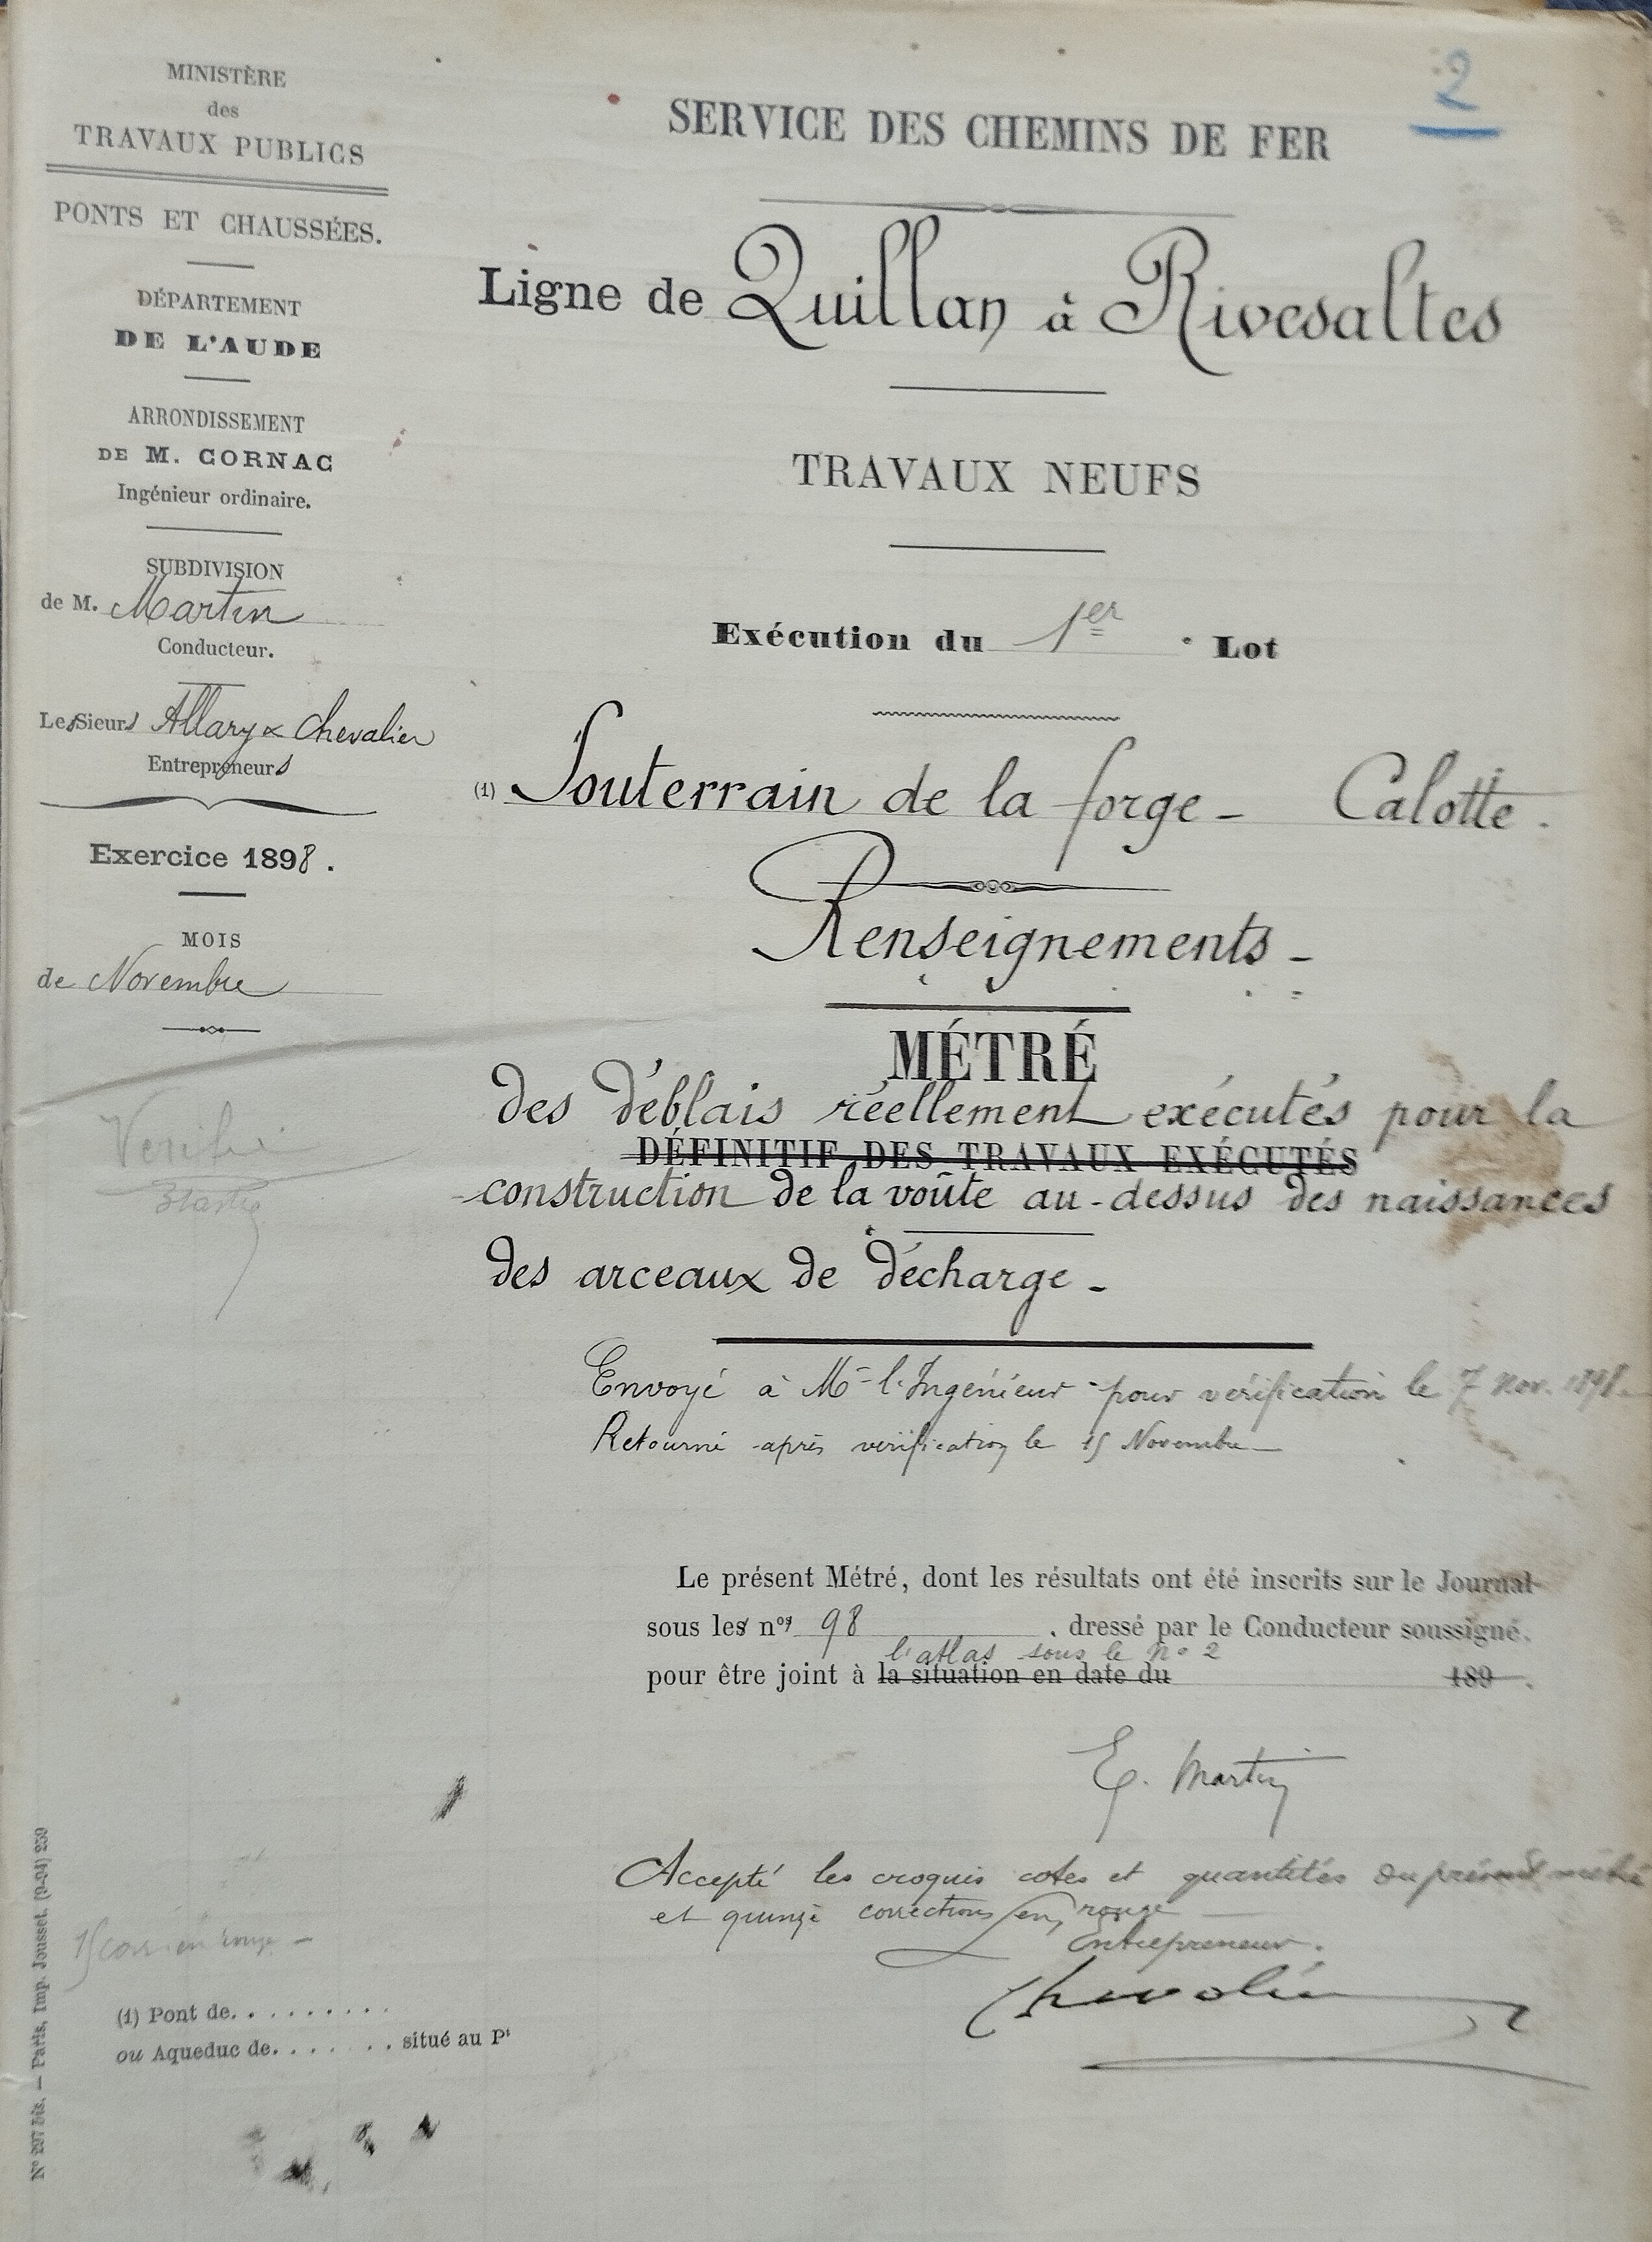 MINISTÈRE
des
TRAVAUX PUBLICS
PONTS ET CHAUSSÉES.
DÉPARTEMENT
DE L'AUDE
ARRONDISSEMENT
DE M. CORNAC
Ingénieur ordinaire.
SUBDIVISION
de M. Martin
Conducteur.
Les Sieurs Allary & Chevalier
Entrepreneurs
Exercice 1898.
MOIS
de Novembre
Verifié
2
SERVICE DES CHEMINS DE FER
Ligne de Quillan à Rivesaltes
TRAVAUX NEUFS
Exécution du 1er Lot
(1) Souterrain de la forge - Calotte.
Renseignements -
MÉTRÉ
des déblais réellement exécutés pour la
DÉFINITIF DES TRAVAUX EXÉCUTÉS
construction de la voûte au-dessus des naissances
des arceaux de décharge -
Envoyé à Mr l'Ingénieur pour vérification le 7 Nov. 1898.
Retourné après vérification le 15 Novembre
Le présent Métré, dont les résultats ont été inscrits sur le Journal
sous les nos 98 , dressé par le Conducteur soussigné.
l'atlas sous le n° 2
pour être joint à la situation en date du 189 .
E. Martin
Accepté les croquis cotes et quantités du présent métré
et quinze corrections en rouge
Entrepreneur.
Chevalier
15 corr en rouge -
(1) Pont de. . . . . . . . .
ou Aqueduc de. . . . . . . situé au Pt
N° 297 bis. — Paris, Imp. Jousset. (9-94) 259